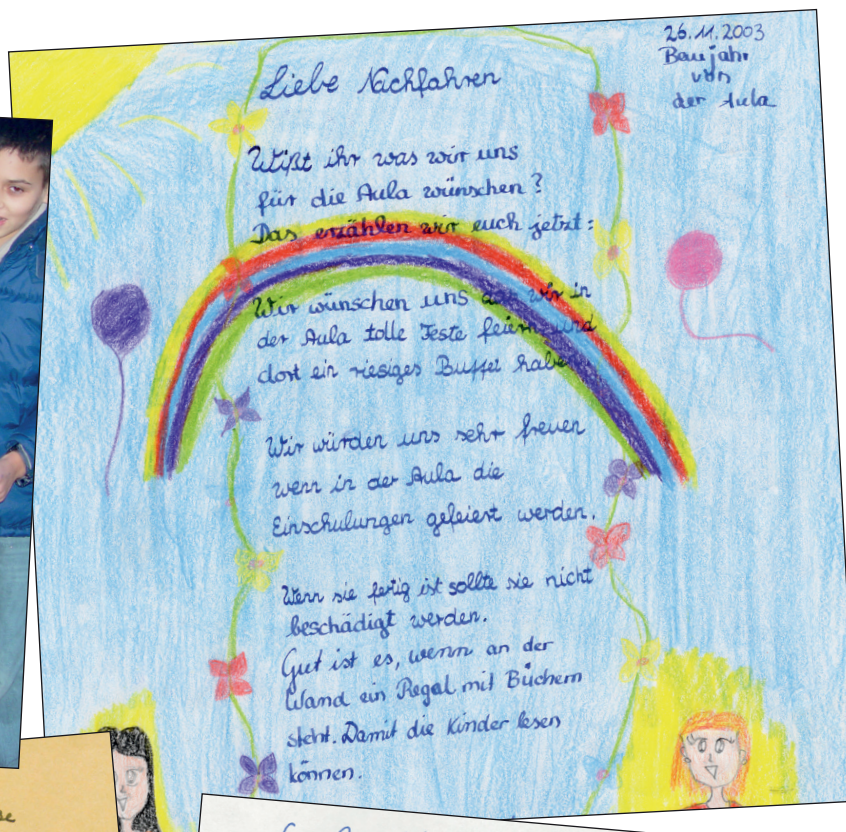 26.11.2003
Baujahr
von
der Aula
Liebe Nachfahren
Wißt ihr was wir uns
für die Aula wünschen?
Das erzählen wir euch jetzt:
Wir wünschen uns das wir in
der Aula tolle Feste feiern und
dort ein riesiges Buffet haben.
Wir würden uns sehr freuen
wenn in der Aula die
Einschulungen gefeiert werden.
Wenn sie fertig ist sollte sie nicht
beschädigt werden.
Gut ist es, wenn an der
Wand ein Regal mit Büchern
steht. Damit die Kinder lesen
können.